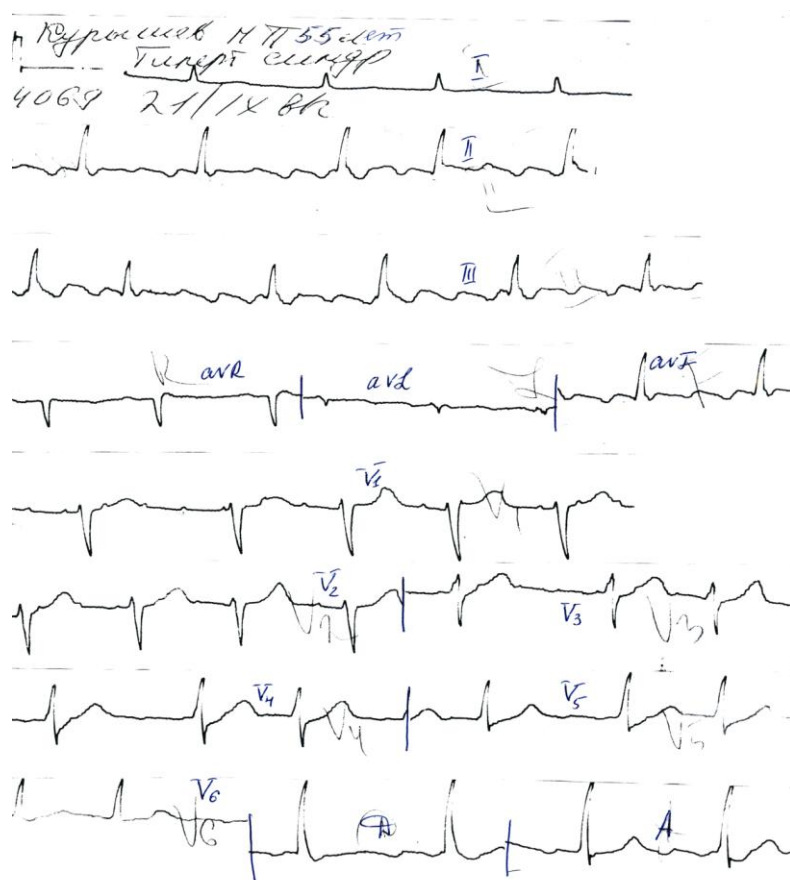 Курышев М П 55 лет
Гиперт синдр
4069 21/IX вк
I
II
II
III
R avR avL L avF
V1
V2 V3
V4 V4 V5 V5
V6 V6 A